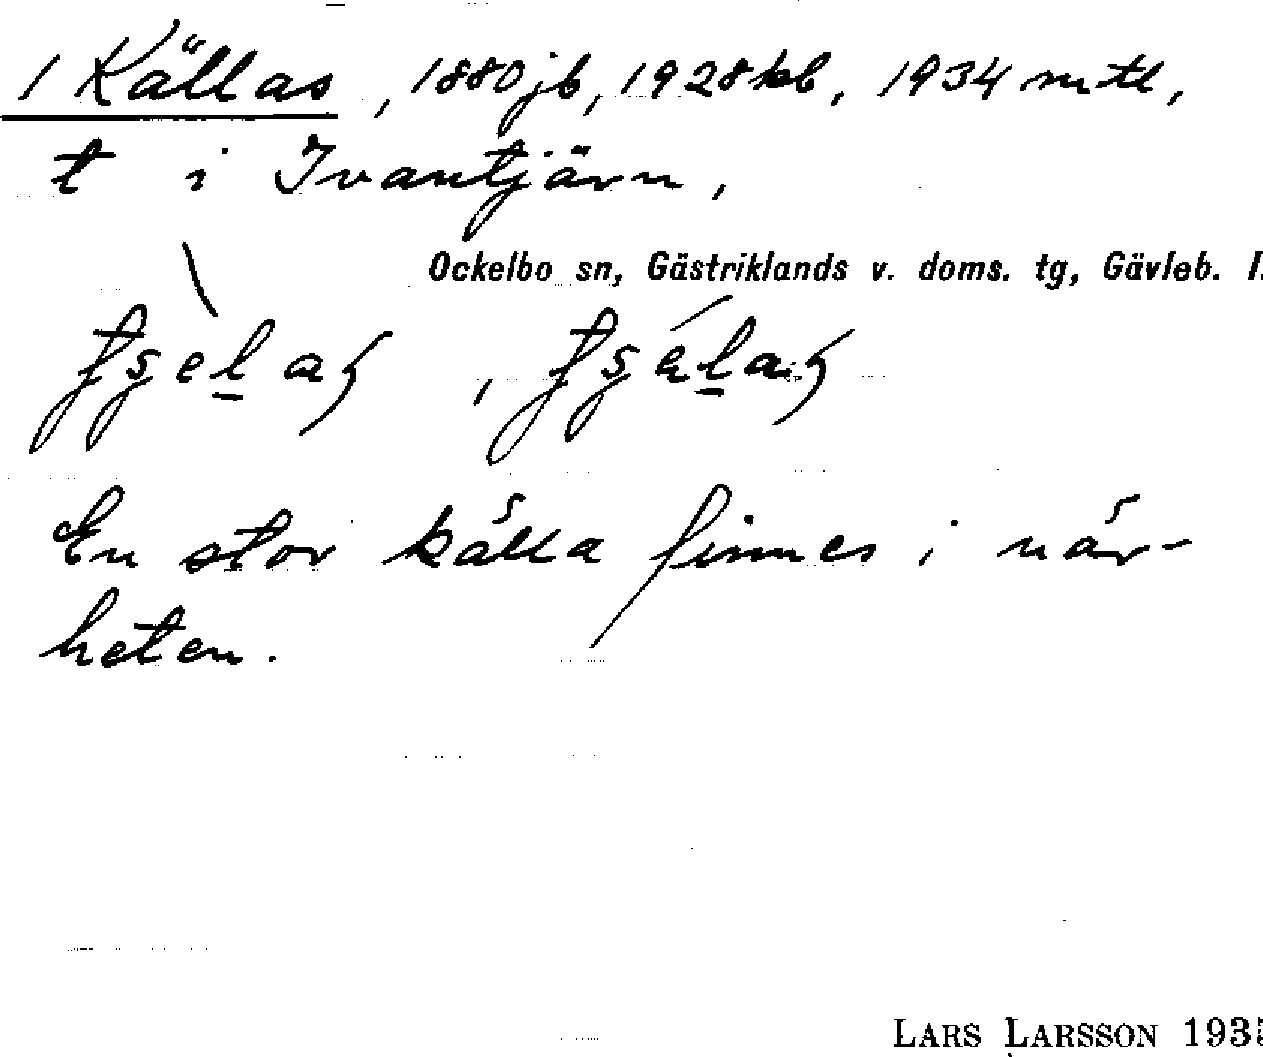 1 Källas, 1880 jb, 1928 kb, 1934 mtl,
t i Ivantjärn,
Ockelbo sn, Gästriklands v. doms. tg, Gävleb. l.
En stor källa finnes i när-
heten.
LARS LARSSON 1935